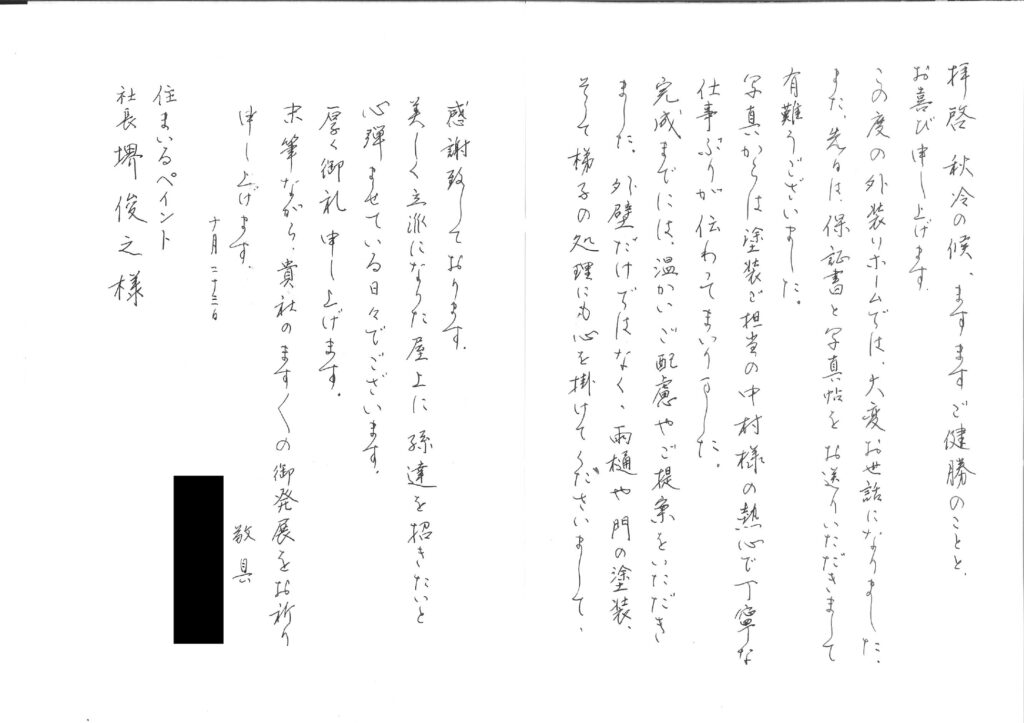 拝啓 秋冷の候、ますますご健勝のことと、
お喜び申し上げます。
この度の外装リホームでは、大変お世話になりました。
また、先日は、保証書と写真帖をお送りいただきまして
有難うございました。
写真からは塗装ご担当の中村様の熱心で丁寧な
仕事ぶりが伝わってまいりました。
完成までには、温かいご配慮やご提案をいただき
ました。外壁だけではなく、雨樋や門の塗装、
そして梯子の処理にも心を掛けてくださいまして、
感謝致しております。
美しく立派になった屋上に孫達を招きたいと
心弾ませている日々でございます。
厚く御礼申し上げます。
末筆ながら、貴社のます〱の御発展をお祈り
申し上げます。
敬具
十月二十三日
住まいるペイント
社長 堺 俊之 様